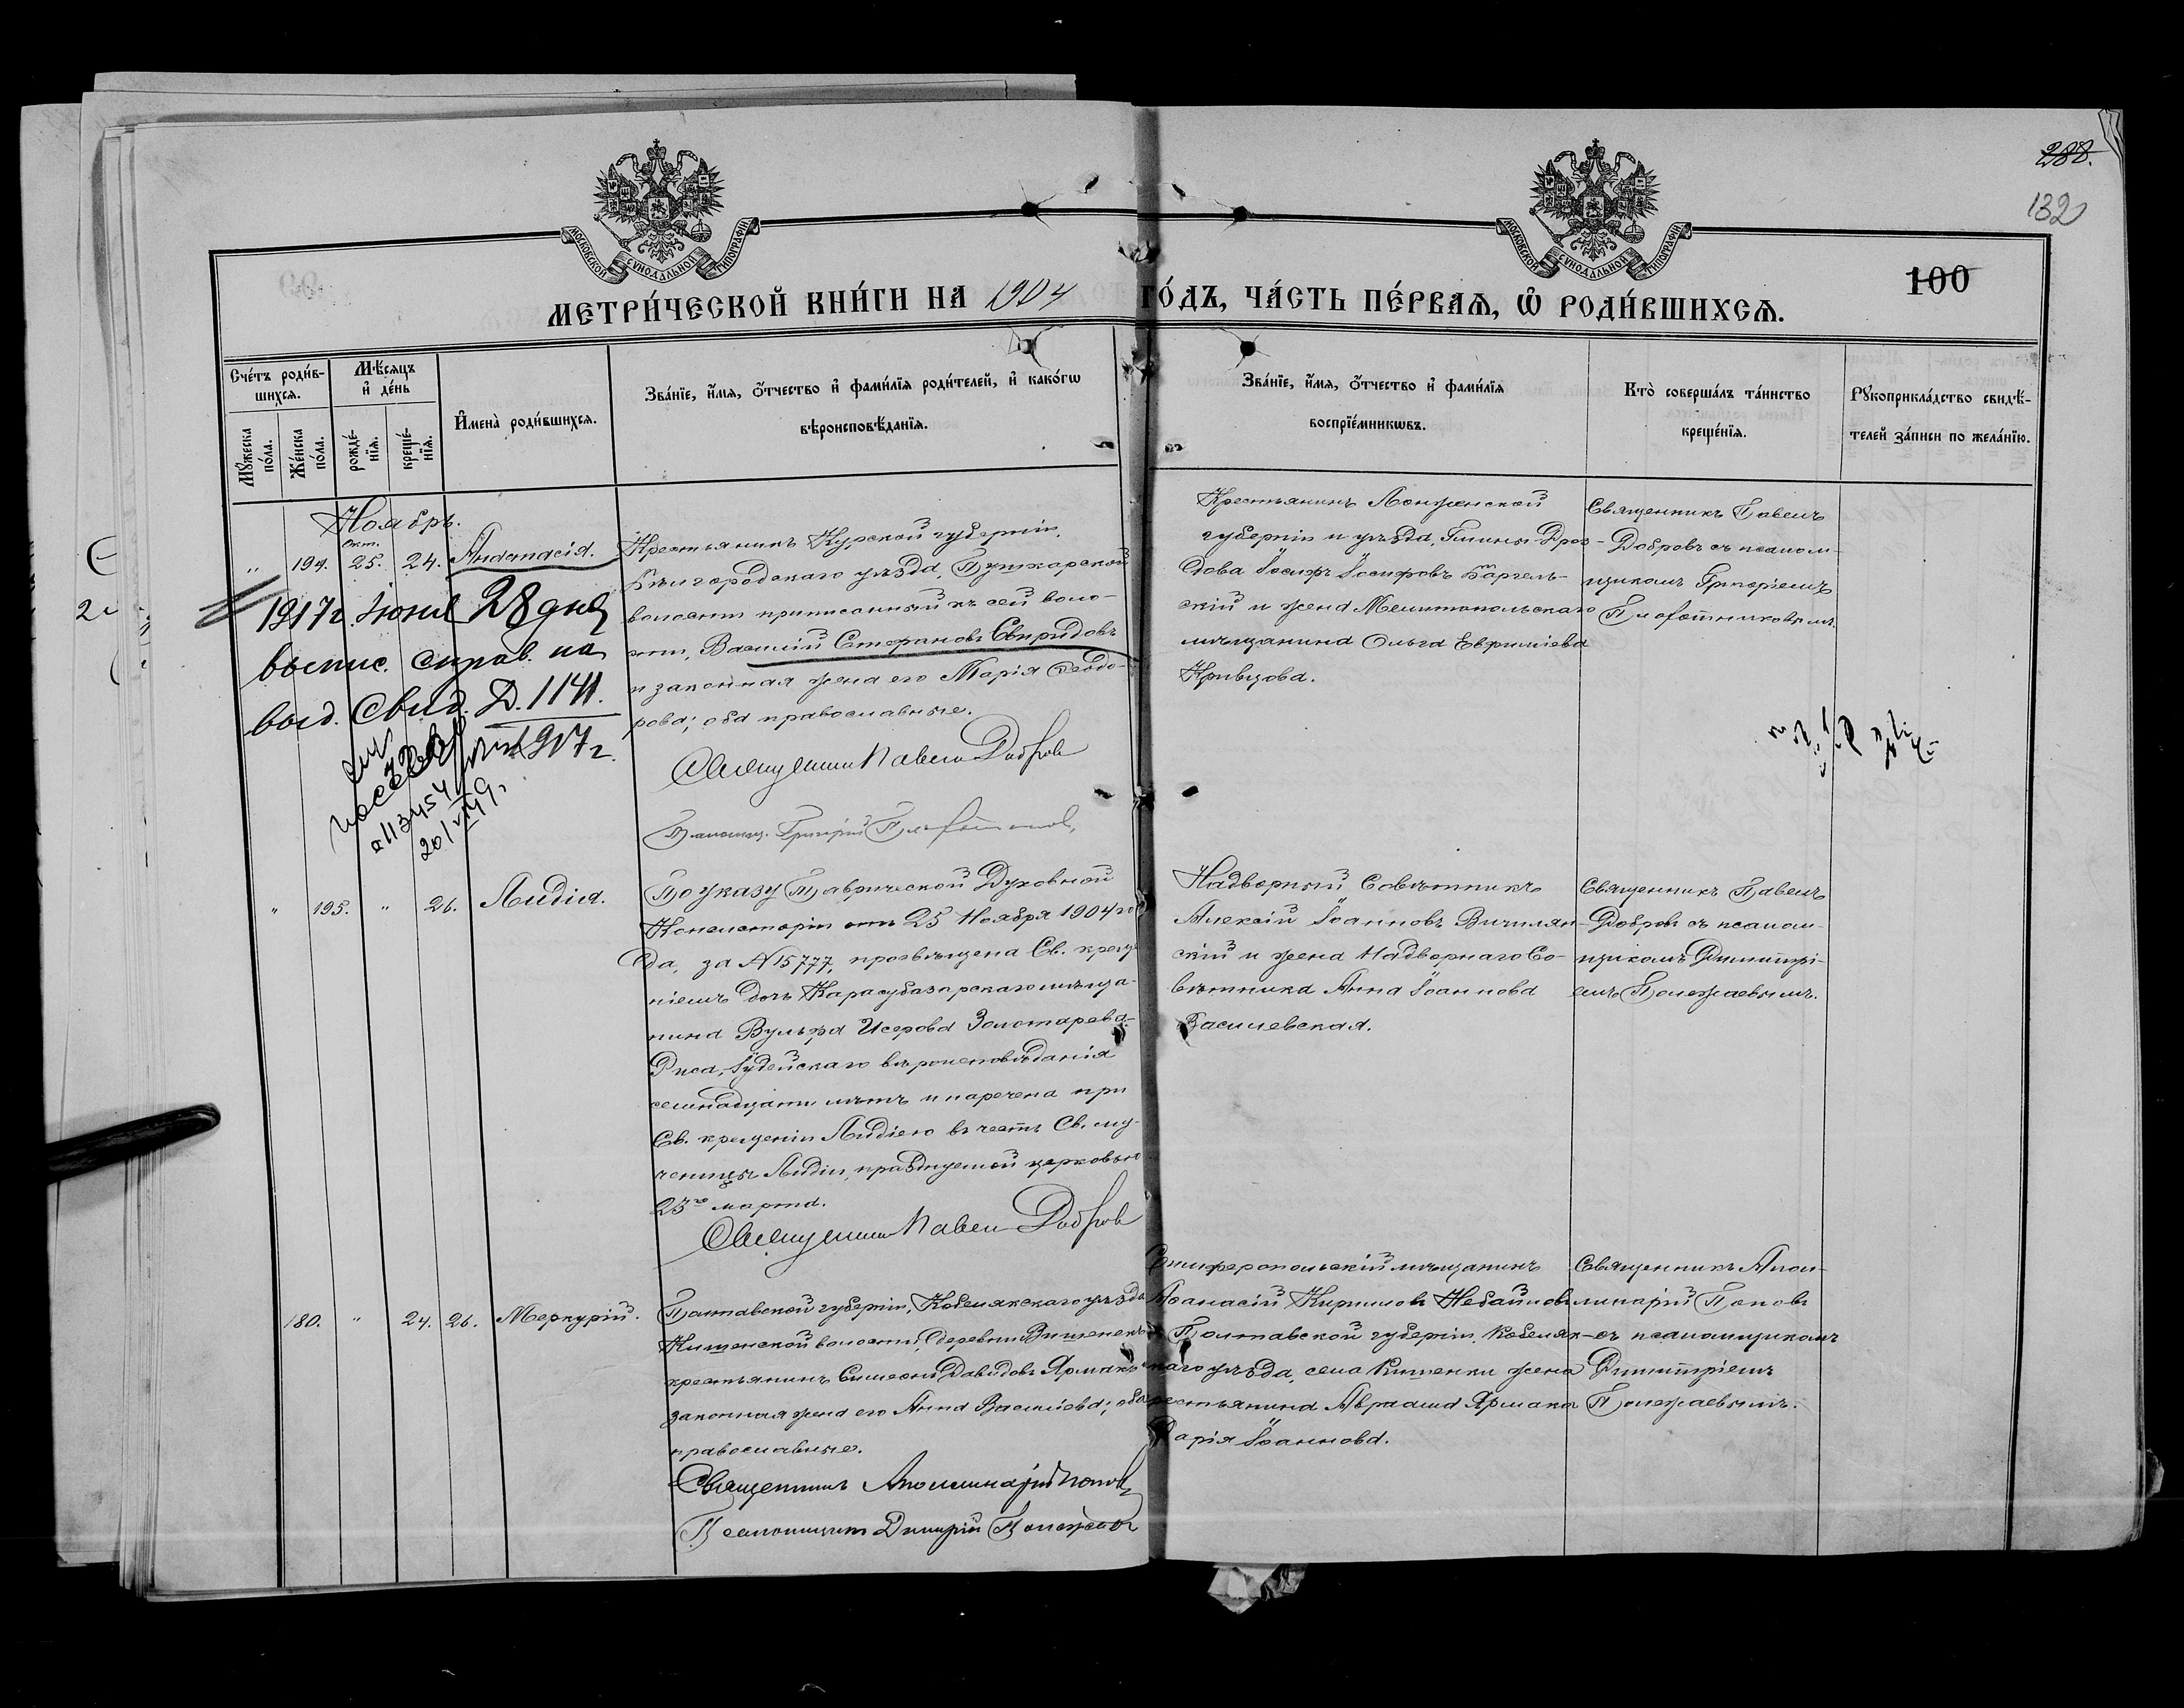 288.
132
100
МОСКОВСКОЙ СѴНОДАЛЬНОЙ ТИПОГРАФІИ
МОСКОВСКОЙ СѴНОДАЛЬНОЙ ТИПОГРАФІИ
МЕТРИ́ЧЕСКОЙ КНИ́ГИ НА 1904 ГО́ДЪ, ЧА́СТЬ ПЕ́РВАЯ, Ѿ РОДИ́ВШИХСЯ.
Сче́тъ роди́в-
шихся.
Мѹ́жеска по́ла.
Же́нска по́ла.
Мѣ́сяцъ и де́нь
рожде́-нїя.
креще́-нїя.
Имена̀ роди́вшихся.
Зва́нїе, и́мя, о́тчество и фами́лїя роди́телей, и како́гѡ
вѣроисповѣ́данїя.
Зва́нїе, и́мя, о́тчество и фами́лїя
воспрїе́мникѡвъ.
Кто̀ соверша́лъ та́инство
креще́нїя.
Рѹкоприкла́дство свидѣ́-
телей за́писи по жела́нїю.
Ноябрь.
Окт.
" 194. 25. 24. Анастасія.
Крестьянинъ Курской губерніи,
Бѣлгородскаго уѣзда, Пушкарской
волости приписанный къ сей воло-
сти, Василій Стефановъ Свиридовъ
и законная жена его Марія Ѳеодо-
рова; оба православные.
Священникъ Павелъ Добровъ
Псаломщ. Григорій
Крестьянинъ Ломжинской
губерніи и уѣзда, Гмины Дроз-
дова Іосифъ Іосифовъ Баргель-
скій и жена Мелитопольскаго
мѣщанина Ольга Евфиміева
Кривцова.
Священникъ Павелъ
Добровъ съ псалом-
щикомъ Григоріемъ
1917 г. Іюня 28 дня
выпис. справ. на
выд. Свид. Д. 1141.
1917 г.
" 195. " 26. Лидія.
По указу Таврической Духовной
Консисторіи отъ 25 Ноября 1904 го
да, за № 15777, просвѣщена Св. креще
ніемъ дочь Карасубазарскаго мѣща-
нина Вульфа Исерова Золотарева-
Риса, Іудейскаго вѣроисповѣданія
семнадцати лѣтъ и наречена при
Св. крещеніи Лидіею въ честь Св. му-
ченицы Лидіи, празднуемой церковью
23го марта.
Священникъ Павелъ Добровъ
Надворный Совѣтникъ
Алексій Іоанновъ Вичилян-
скій и жена Надворнаго Со-
вѣтника Анна Іоаннова
Василевская.
Священникъ Павелъ
Добровъ съ псалом-
щикомъ Димитрі-
емъ Полежаевымъ.
180. " 24. 26. Меркурій.
Полтавской губерніи, Кобелякскаго уѣзда
Кишенской волости, деревни Вишенекъ
крестьянинъ Симеонъ Давидовъ Ярмакъ и
законная жена его Анна Васильева; оба
православные.
Священникъ Аполлинарій Поповъ
Псаломщикъ Димитрій Полежаевъ
Симферопольскій мѣщанинъ
Аѳанасій Кирилловъ Небайловъ
и Полтавской губерніи, Кобеляк-
скаго уѣзда, села Кишенки жена
крестьянина Авраама Ярмака
Дарія Іоаннова.
Священникъ Апол-
линарій Поповъ
съ псаломщикомъ
Димитріемъ
Полежаевымъ.